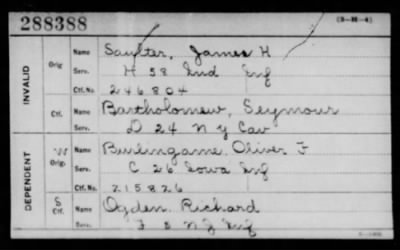 288388
(3-M-4)
INVALID
Orig
Name Saulter, James H
Serv. H 58 Ind Inf
Ctf. No. 246804
Ctf.
Name Bartholomew, Seymour
Serv. D 24 N Y Cav
DEPENDENT
W
Orig.
Name Burlingame. Oliver F
Serv. C 26 Iowa Inf
Ctf. No. 215826
Ctf.
Name Ogden. Richard
Serv. N J Inf